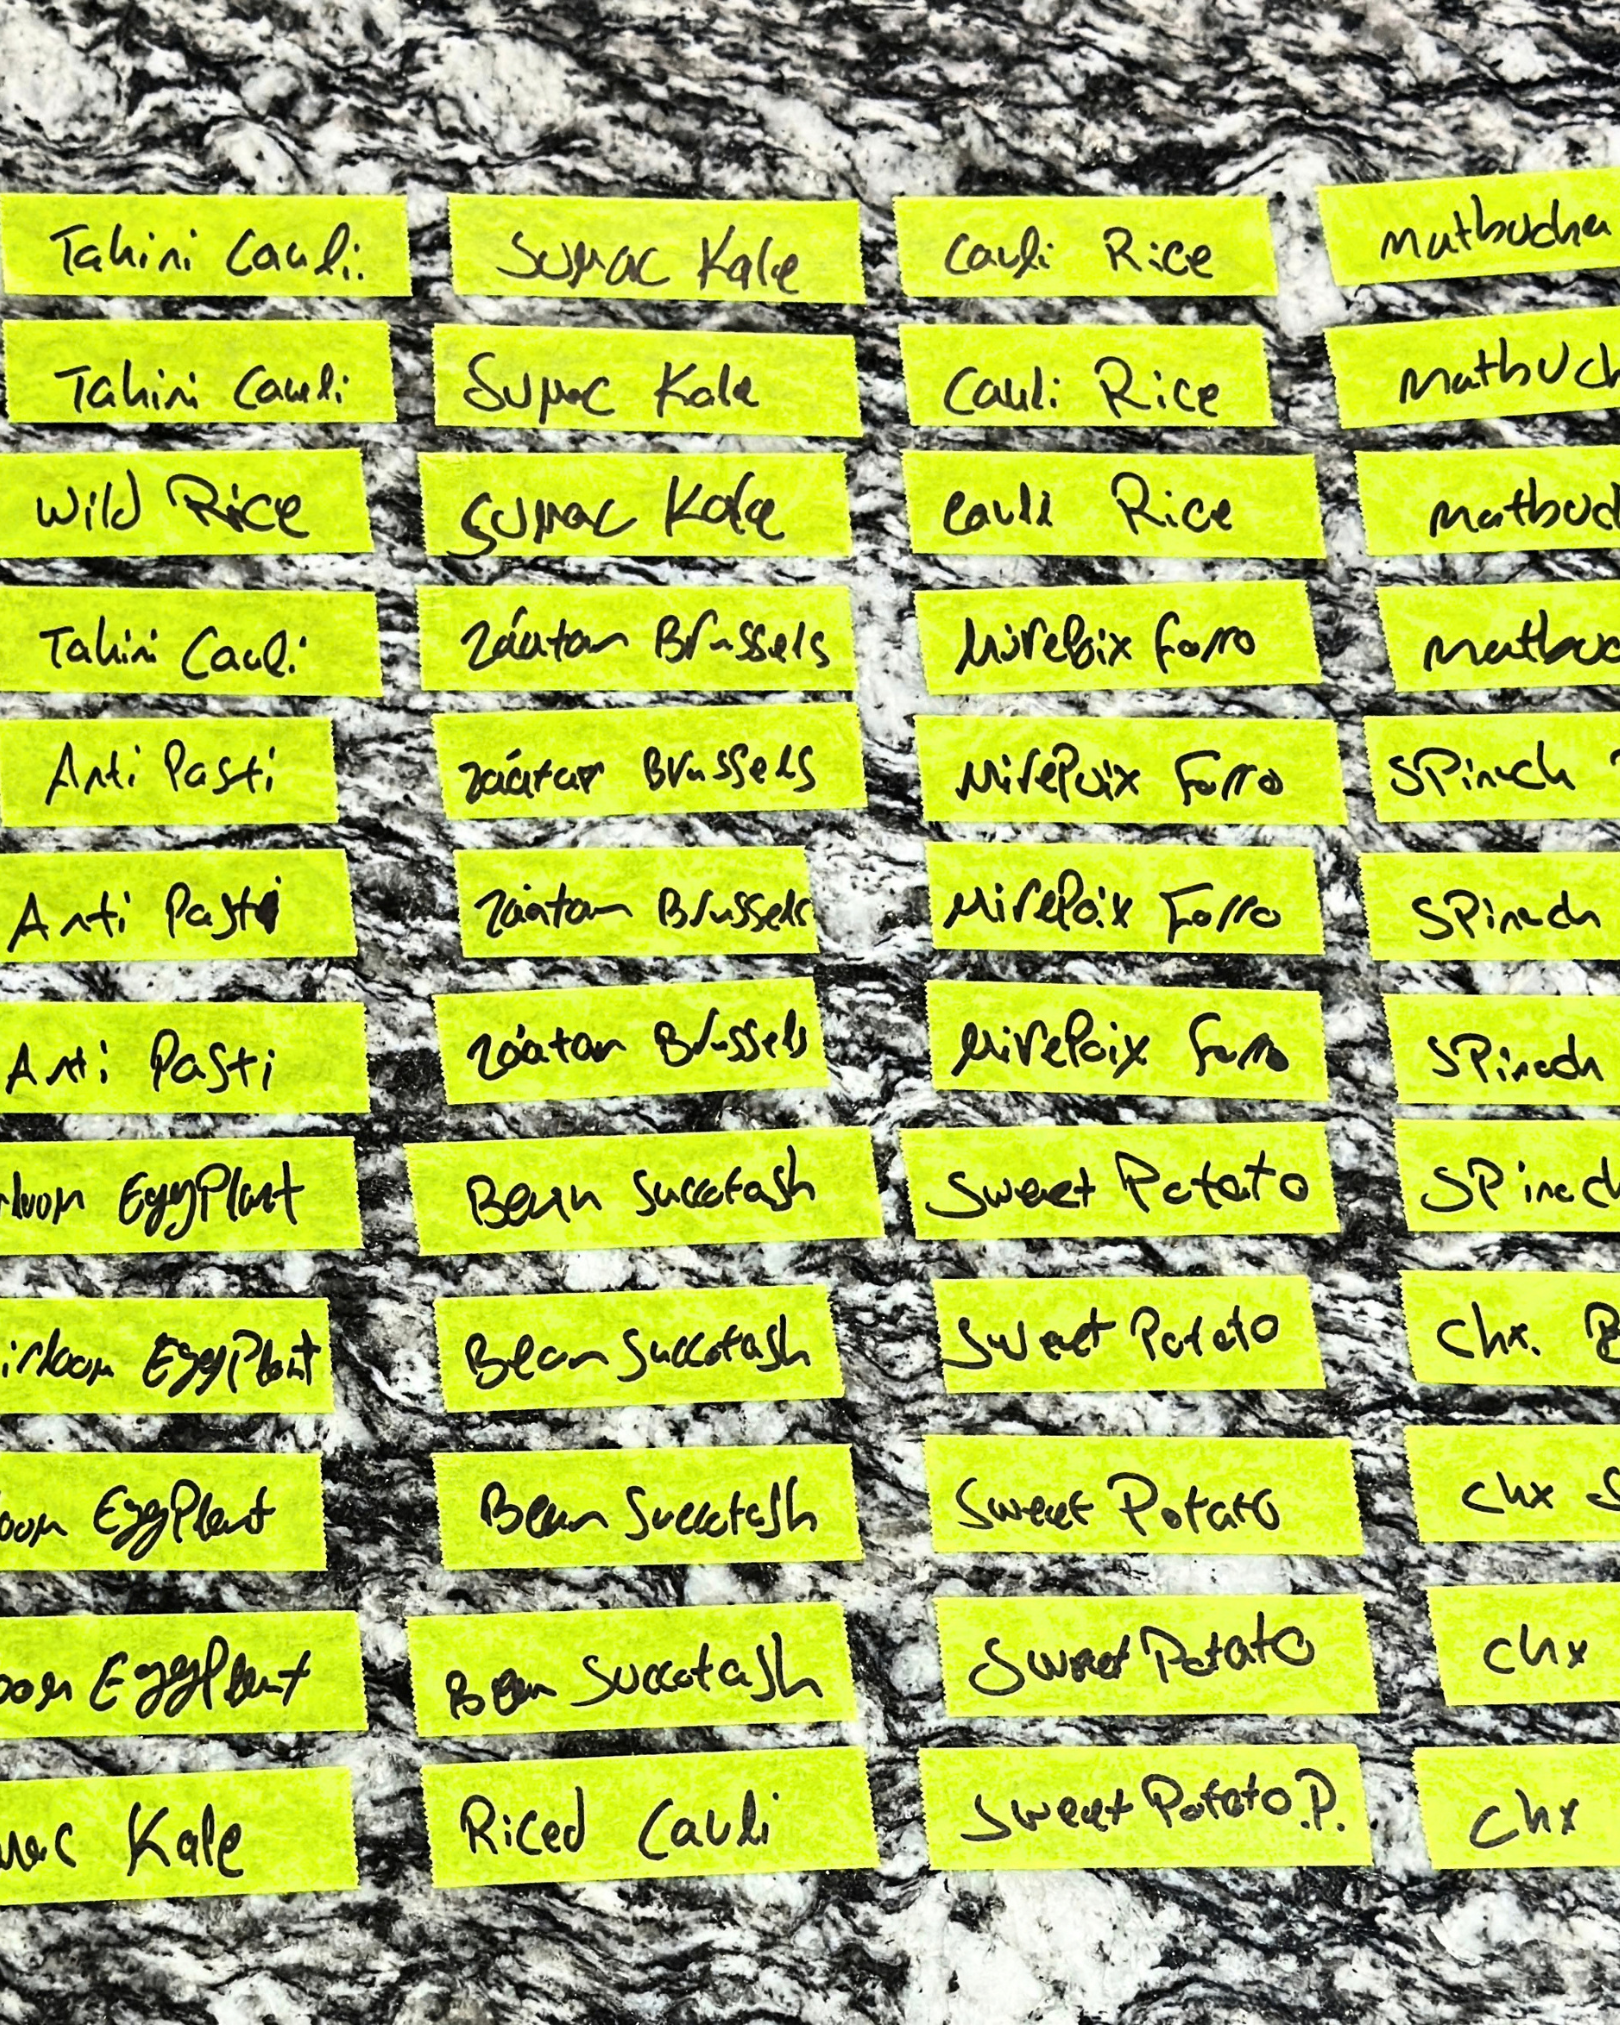 Tahini Cauli.
Sumac Kale
Cauli Rice
Matbucha
Tahini Cauli
Sumac Kale
Cauli Rice
Matbuch
Wild Rice
Sumac Kale
Cauli Rice
Matbuc
Tahini Cauli
Záatar Brussels
MirePoix Farro
Matbuc
Anti Pasti
Záatar Brussels
MirePoix Farro
SPinach
Anti Pasti
Záatar Brussels
MirePoix Farro
SPinach
Anti Pasti
Záatar Brussels
MirePoix Farro
SPinach
loom EggPlant
Bean Succotash
Sweet Potato
SPinach
irloom EggPlant
Bean Succotash
Sweet Potato
Chx.
oom EggPlant
Bean Succotash
Sweet Potato
Chx S
oom EggPlant
Bean Succotash
Sweet Potato
Chx
mac Kale
Riced Cauli
Sweet Potato.P.
Chx